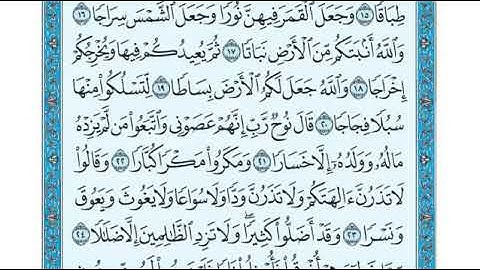 طِبَاقًا ١٥ وَجَعَلَ ٱلْقَمَرَ فِيهِنَّ نُورًا وَجَعَلَ ٱلشَّمْسَ سِرَاجًا ١٦
وَٱللَّهُ أَنۢبَتَكُم مِّنَ ٱلْأَرْضِ نَبَاتًا ١٧ ثُمَّ يُعِيدُكُمْ فِيهَا وَيُخْرِجُكُمْ
إِخْرَاجًا ١٨ وَٱللَّهُ جَعَلَ لَكُمُ ٱلْأَرْضَ بِسَاطًا ١٩ لِّتَسْلُكُوا۟ مِنْهَا
سُبُلًا فِجَاجًا ٢٠ قَالَ نُوحٌ رَّبِّ إِنَّهُمْ عَصَوْنِى وَٱتَّبَعُوا۟ مَن لَّمْ يَزِدْهُ
مَالُهُۥ وَوَلَدُهُۥٓ إِلَّا خَسَارًا ٢١ وَمَكَرُوا۟ مَكْرًا كُبَّارًا ٢٢ وَقَالُوا۟
لَا تَذَرُنَّ ءَالِهَتَكُمْ وَلَا تَذَرُنَّ وَدًّا وَلَا سُوَاعًا وَلَا يَغُوثَ وَيَعُوقَ
وَنَسْرًا ٢٣ وَقَدْ أَضَلُّوا۟ كَثِيرًا ۖ وَلَا تَزِدِ ٱلظَّٰلِمِينَ إِلَّا ضَلَٰلًا ٢٤